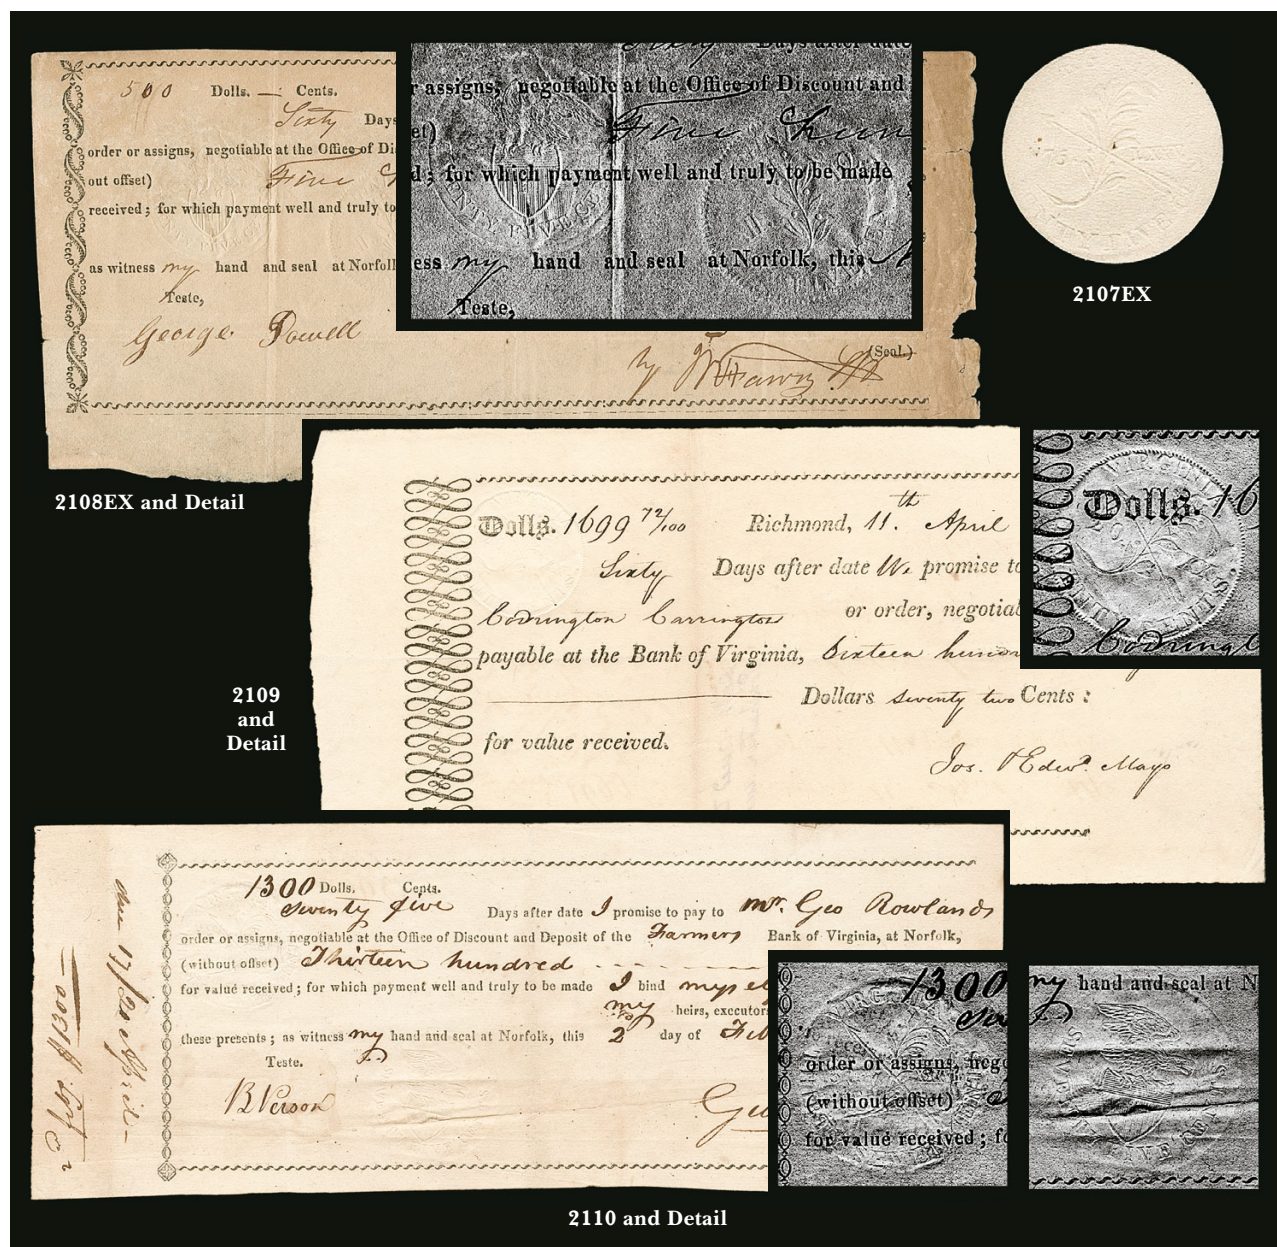 500 Dolls. — Cents.
Sixty Days
order or assigns, negotiable at the Office of Di
out offset) Five
received; for which payment well and truly to
as witness my hand and seal at Norfol
Teste,
George Powell
by
(Seal.)
Sixty Days after date
r assigns, negotiable at the Office of Discount and
et) Five Hun
d; for which payment well and truly to be made
NTY FIVE C
ess my hand and seal at Norfolk, this
Teste,
2107EX
2108EX and Detail
Dolls. 1699 72/100 Richmond, 11.th April
Sixty Days after date We promise to
Codrington Carrington or order, negotial
payable at the Bank of Virginia, Sixteen hun
Dollars seventy two Cents:
for value received.
Jos. & Edwd. Mayo
VIRGINI
Dolls. 16
CENTS.
Codringt
2109
and
Detail
1300 Dolls. Cents.
Seventy five Days after date I promise to pay to Mr. Geo Rowlands
order or assigns, negotiable at the Office of Discount and Deposit of the Farmers Bank of Virginia, at Norfolk,
(without offset) Thirteen hundred
for value received; for which payment well and truly to be made I bind mysel
my heirs, executor
these presents; as witness my hand and seal at Norfolk, this 2 day of Feb
Teste.
Geo
$1300
VIRGINIA
1300
order or assigns, nego
(without offset)
for value received; fo
my hand and seal at N
FIVE CENTS
2110 and Detail